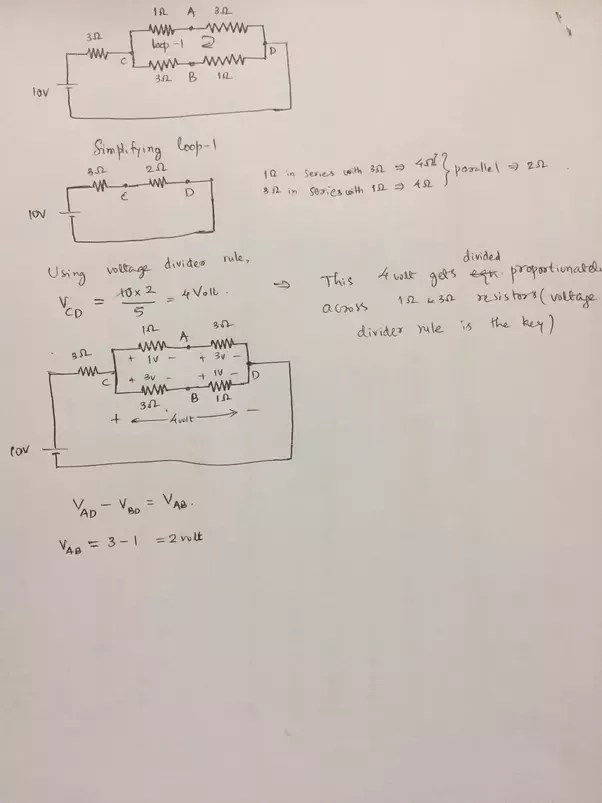 1Ω A 3Ω
3Ω
loop-1 2
C D
3Ω B 1Ω
10V
Simplifying loop-1
3Ω 2Ω
C D
10V
1Ω in series with 3Ω ⇒ 4Ω } parallel ⇒ 2Ω
3Ω in series with 1Ω ⇒ 4Ω
Using voltage divider rule,
V_CD = 10×2/5 = 4 Volt.
⇒ This 4 volt gets divided proportionately
across 1Ω & 3Ω resistors (voltage
divider rule is the key)
1Ω A 3Ω
3Ω
+ 1V - + 3V -
C D
+ 3V - + 1V -
3Ω B 1Ω
+ 4volt -
10V
V_AD - V_BD = V_AB.
V_AB = 3 - 1 = 2 volt